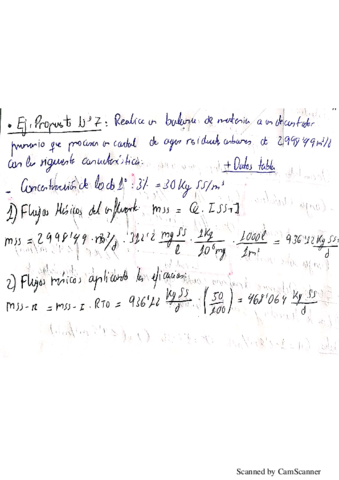 • Ej. Propuesto Nº7: Realice un balance de materia a un decantador
primario que procesa un caudal de agua residual urbana de 2998'49 m³/d
con las siguientes características: + Datos tabla
- Concentración de lodo 1º: 3% = 30 Kg SS/m³
1) Flujos Másicos del influente. mss = Q · [SST]
mss = 2998'49 m³/d · 312'2 mg SS/l · 1Kg/10⁶mg · 1000l/1m³ = 936'12 Kg SS/d
2) Flujos másicos aplicando la eficacia:
mss-R = mss-I · RTO = 936'12 Kg SS/d · (50/100) = 468'064 Kg SS/d
Scanned by CamScanner